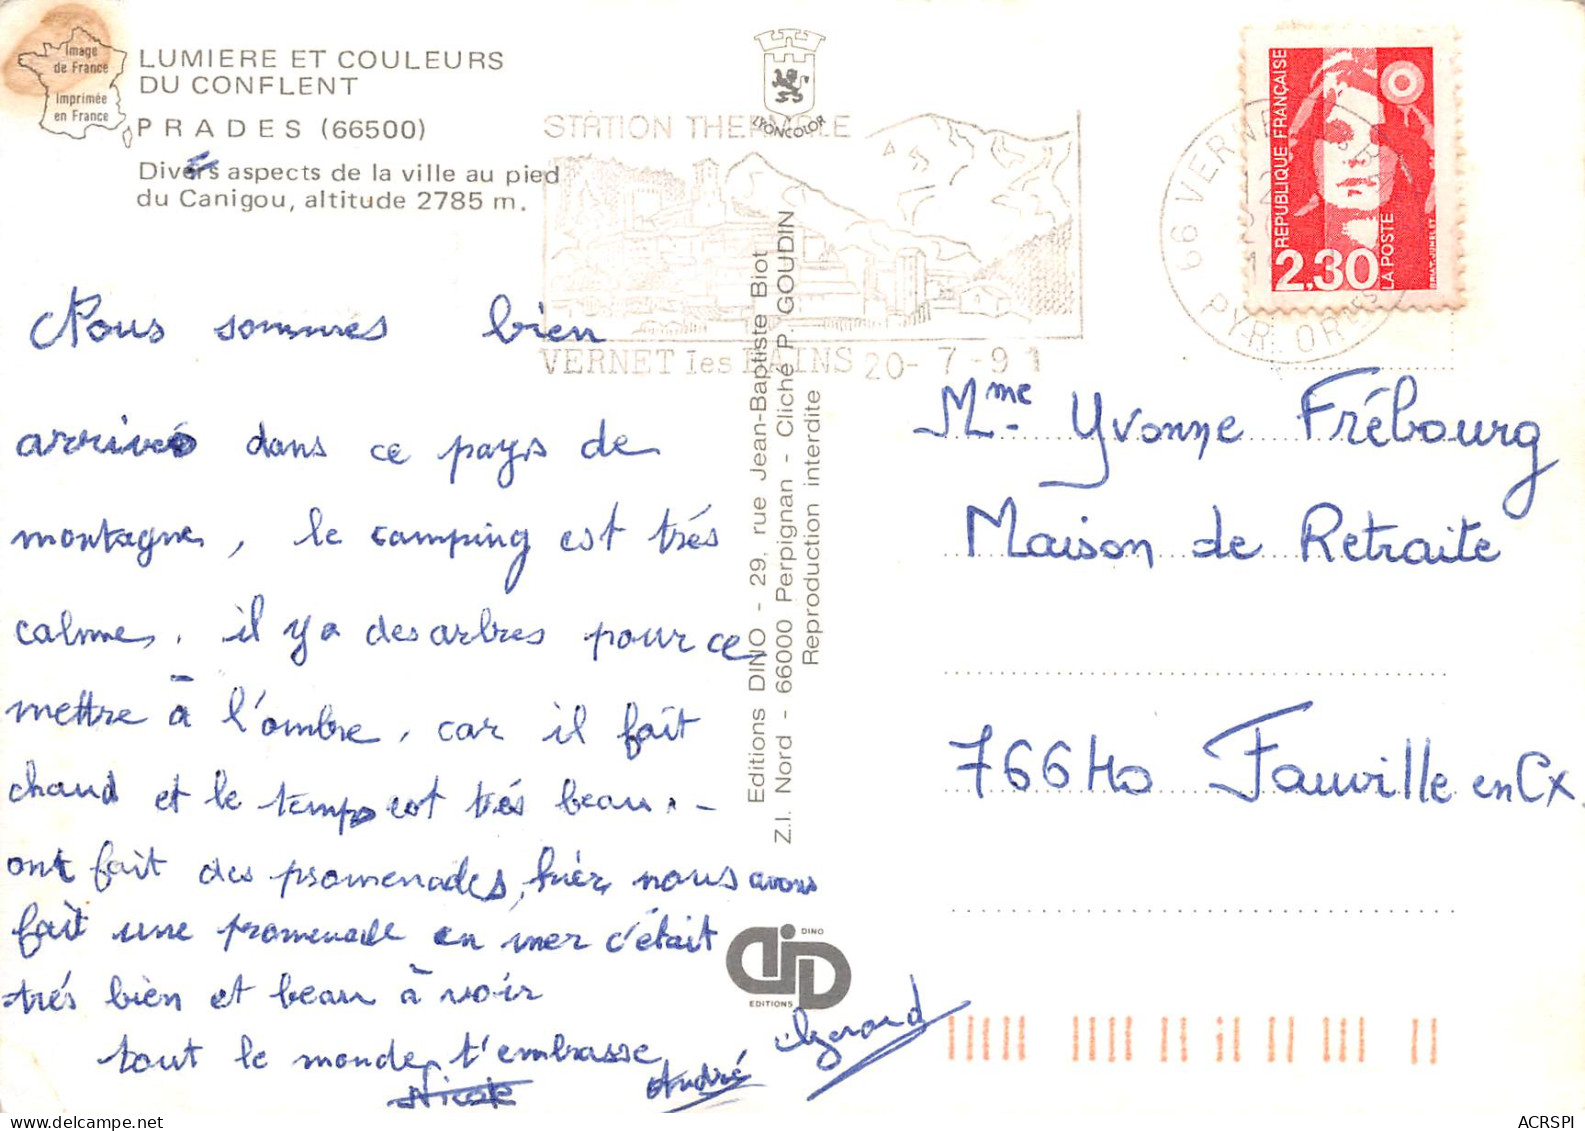 Image
de France
Imprimée
en France
LUMIERE ET COULEURS
DU CONFLENT
PRADES (66500)
Divers aspects de la ville au pied
du Canigou, altitude 2785 m.
LYONCOLOR
STATION THERMALE
VERNET les BAINS 20-7-91
66 VERNET
PYR. ORles
REPUBLIQUE FRANÇAISE
2,30
LA POSTE
BRIAT-JUMELET
Nous sommes bien
arrivés dans ce pays de
montagnes, le camping est trés
calmes, il y a des arbres pour ce
mettre à l'ombre, car il fait
chaud et le temps est trés beau. -
ont fait des promenades, hier, nous avons
fait une promenade en mer c'était
trés bien et beau à voir
tout le monde t'embrasse
Nicole
André
Gerard
Editions DINO - 29, rue Jean-Baptiste Biot
Z.I. Nord - 66000 Perpignan - Cliché P. GOUDIN
Reproduction interdite
DINO
EDITIONS
Mme Yvonne Frébourg
Maison de Retraite
76640 Fauville en Cx
ACRSPI